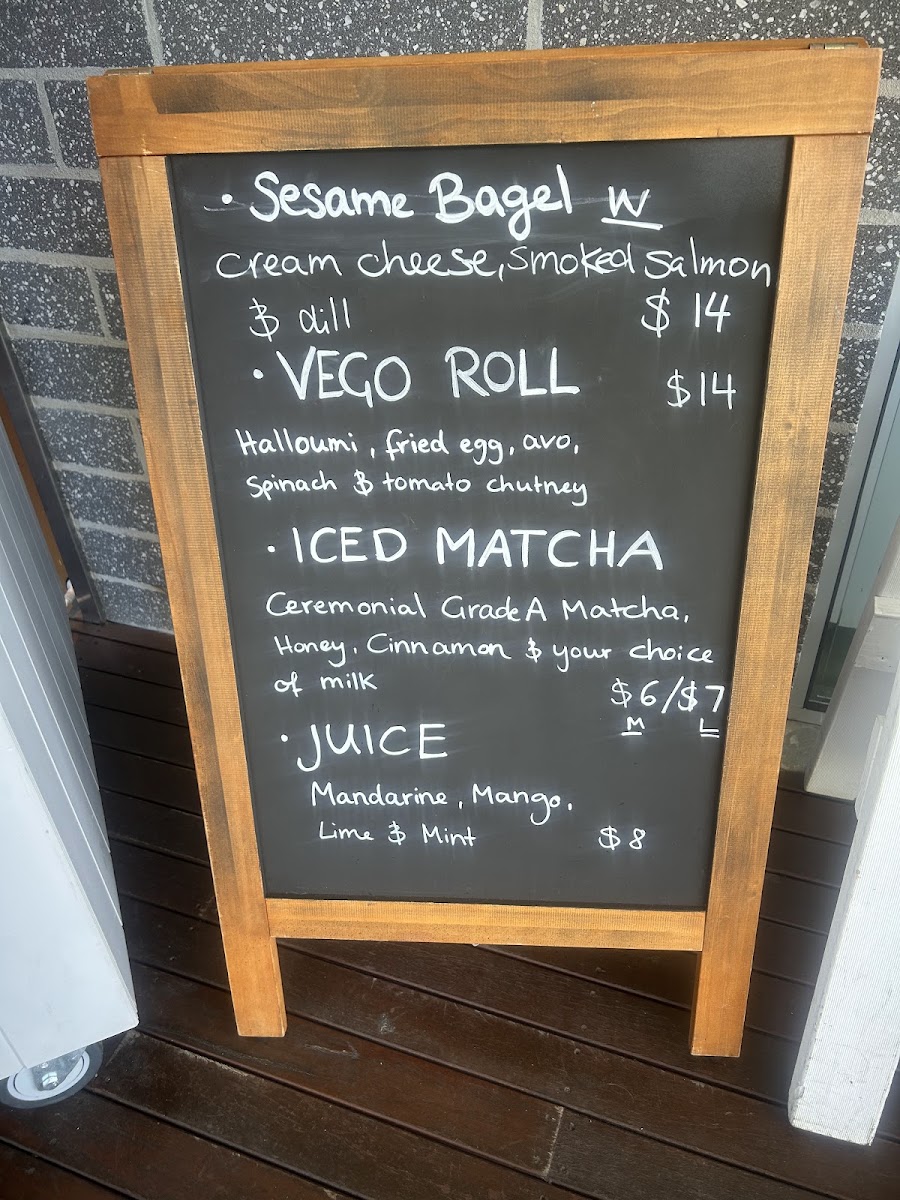 • Sesame Bagel w
cream cheese, smoked salmon
& dill $14
• VEGO ROLL $14
Halloumi, fried egg, avo,
Spinach & tomato chutney
• ICED MATCHA
Ceremonial Grade A Matcha,
Honey, Cinnamon & your choice
of milk $6/$7
M L
• JUICE
Mandarine, Mango,
Lime & Mint $8